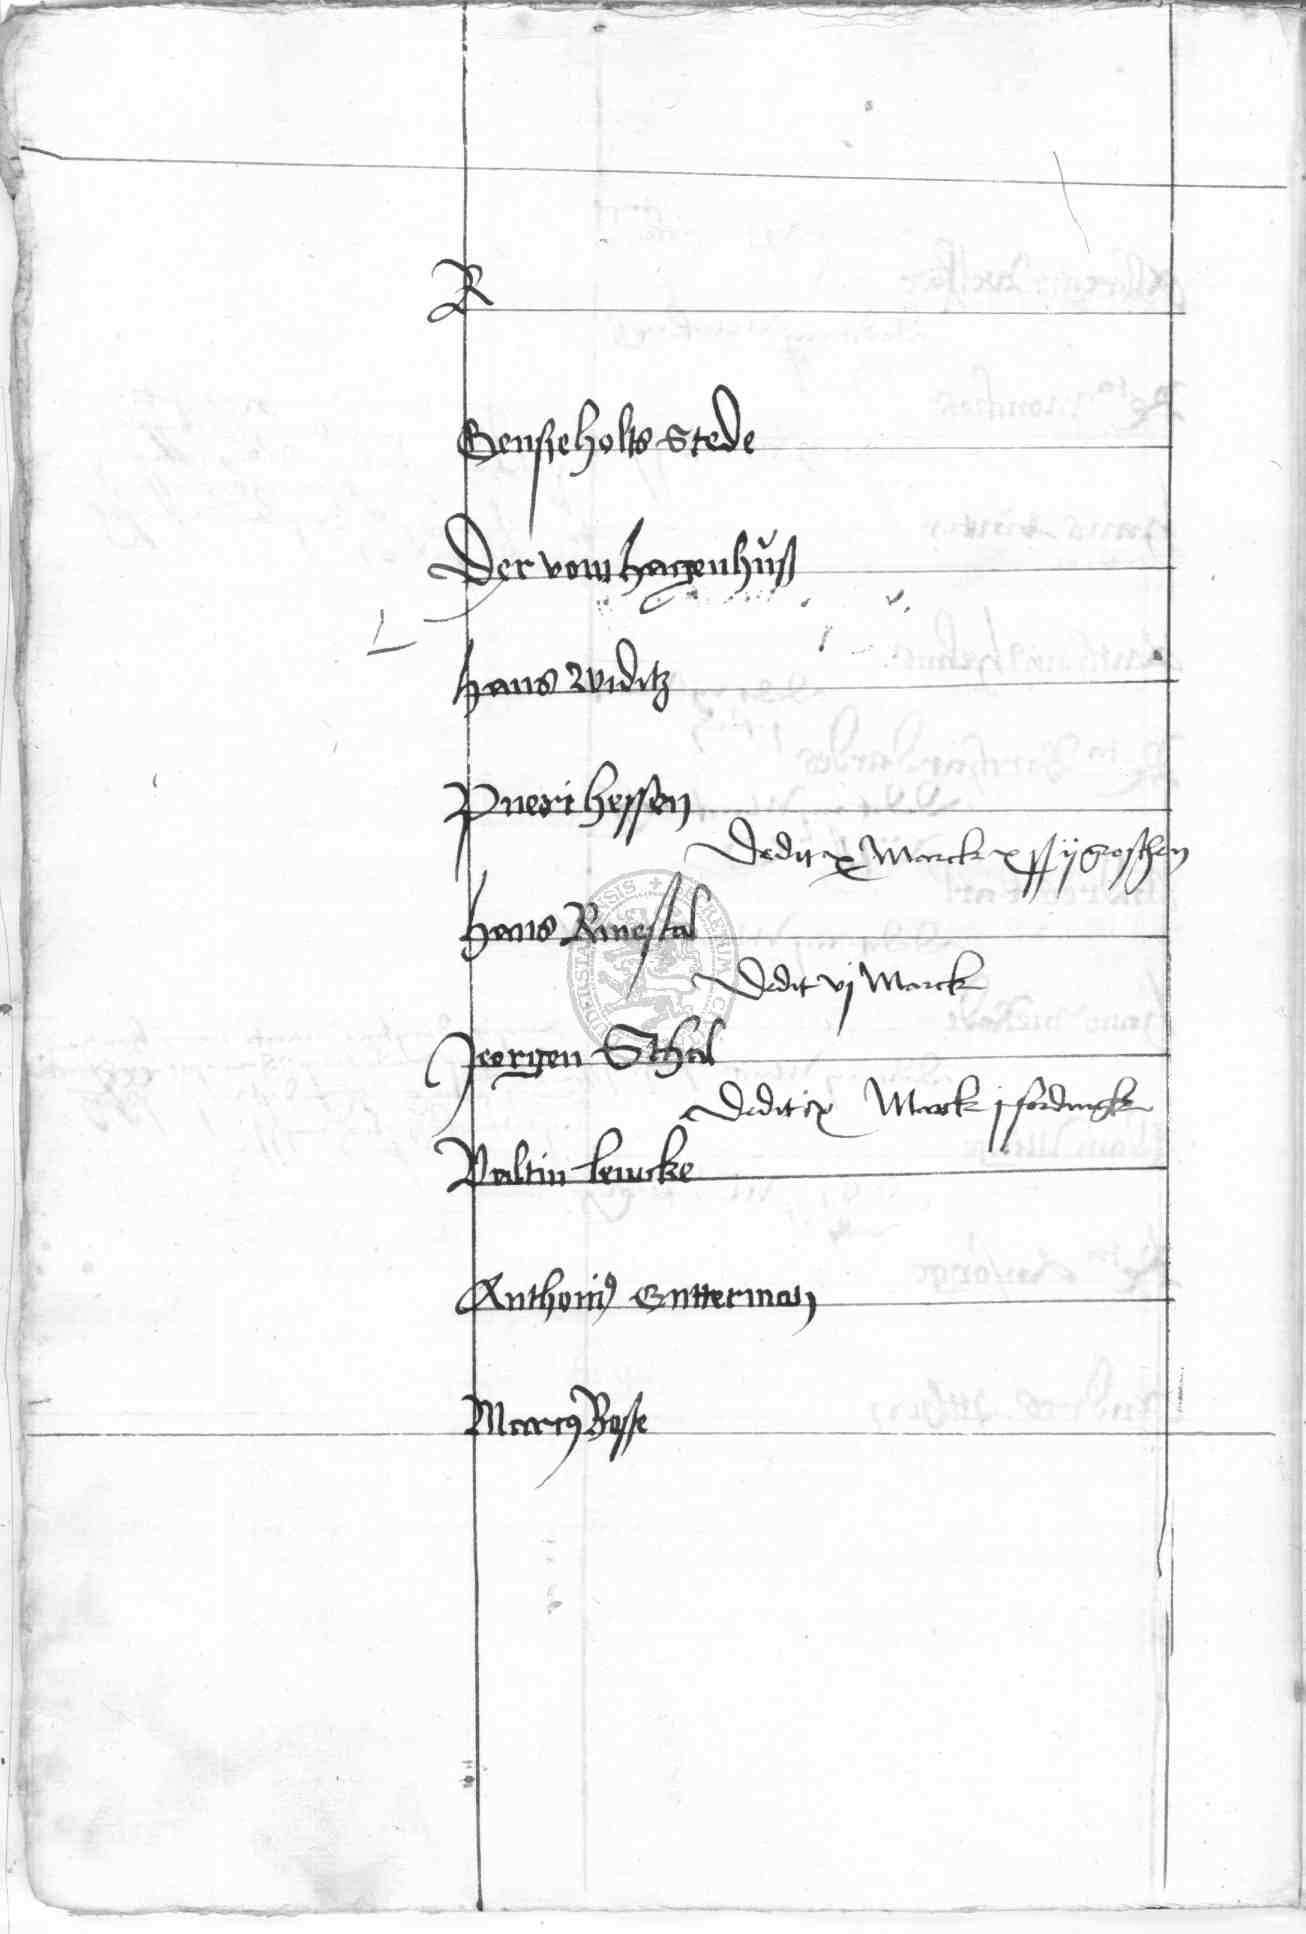 R
Gensieholts Stede
Der vom hagenhuß
hans widitz
Pueri hessen
Dedit x Marck x ß ij Groschen
hans Rinestal
Dedit vj Marck
Jeorgen Sthal
Dedit ix Marck j fordingk
Valtin lemcke
Anthoni9 Gutterman
Marc9 Bosse